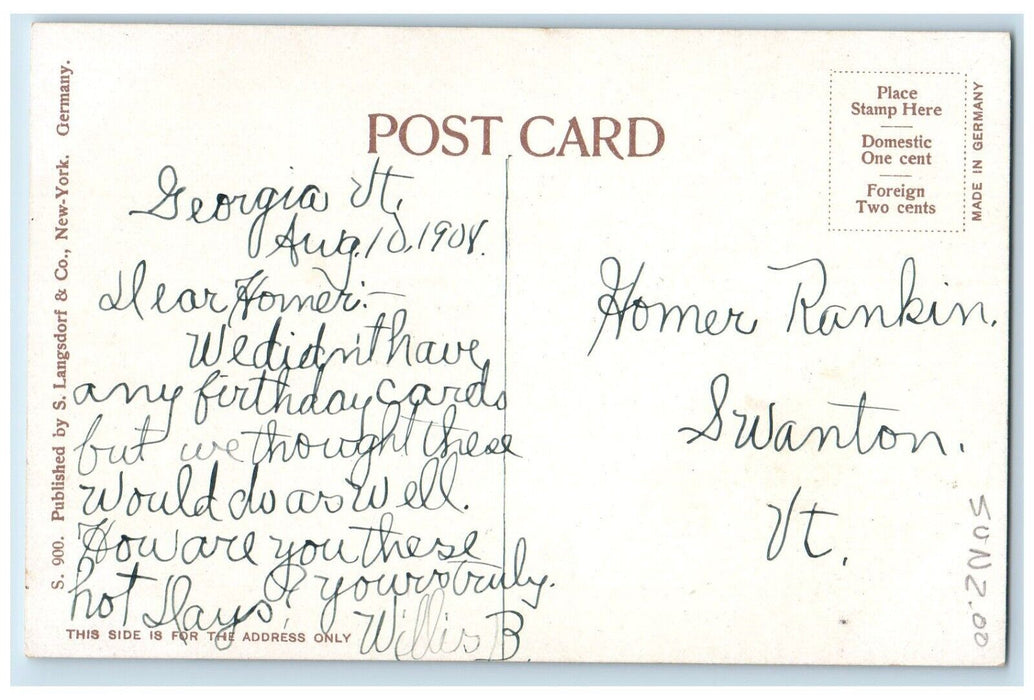 POST CARD
Place
Stamp Here
Domestic
One cent
Foreign
Two cents
MADE IN GERMANY
S. 900. Published by S. Langsdorf & Co., New-York. Germany.
Georgia Vt.
Aug. 10, 1908.
Dear Homer:—
We didn't have
any birthday cards
but we thought these
would do as well.
How are you these
hot days? yours truly.
Willis B.
THIS SIDE IS FOR THE ADDRESS ONLY
Homer Rankin.
Swanton.
Vt.